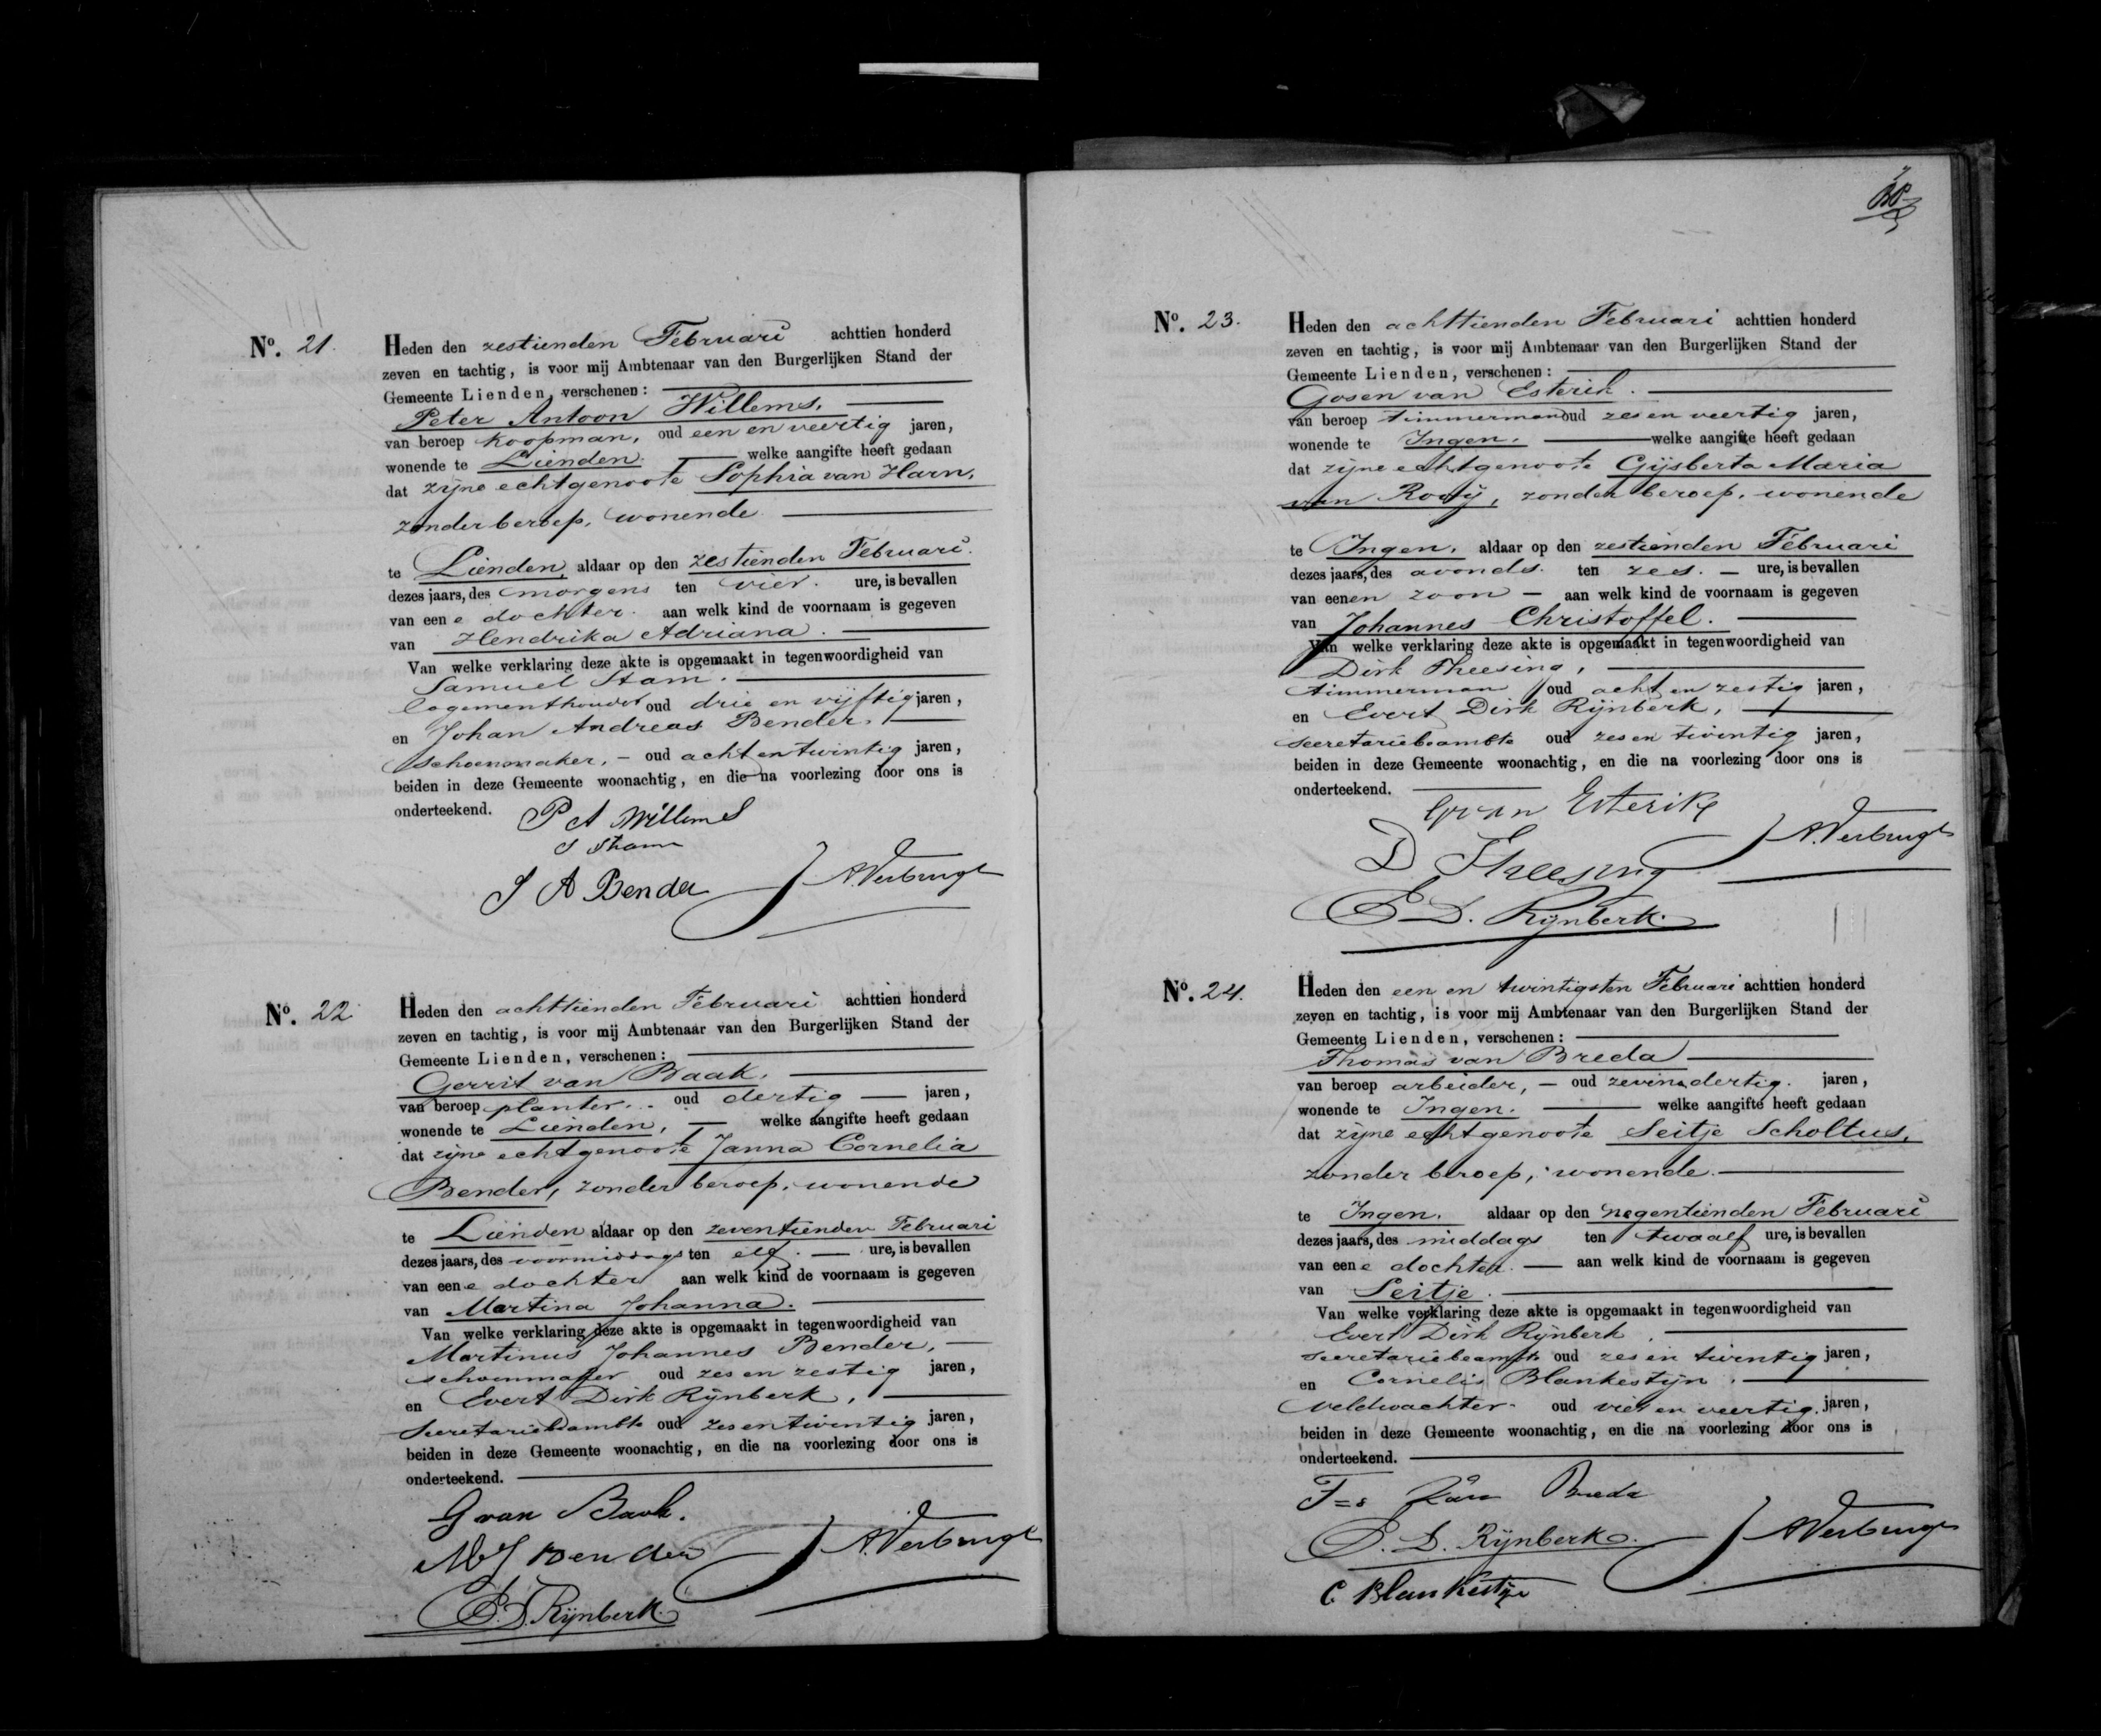 No. 21.
Heden den zestienden Februari achttien honderd
zeven en tachtig, is voor mij Ambtenaar van den Burgerlijken Stand der
Gemeente Lienden, verschenen:
Peter Antoon Willems,
van beroep koopman, oud een en veertig jaren,
wonende te Lienden. welke aangifte heeft gedaan
dat zijne echtgenoote Sophia van Harn,
zonder beroep, wonende
te Lienden, aldaar op den zestienden Februari.
dezes jaars, des morgens ten vier. ure, is bevallen
van eene dochter. aan welk kind de voornaam is gegeven
van Hendrika Adriana.
Van welke verklaring deze akte is opgemaakt in tegenwoordigheid van
Samuel Stam.
logementhouder oud drie en vijftig jaren,
en Johan Andreas Bender,
schoenmaker, - oud acht en twintig jaren,
beiden in deze Gemeente woonachtig, en die na voorlezing door ons is
onderteekend.
P A Willems
S Stam
J A Bender
A. Verbrugh
No. 22
Heden den achttienden Februari achttien honderd
zeven en tachtig, is voor mij Ambtenaar van den Burgerlijken Stand der
Gemeente Lienden, verschenen:
Gerrit van Baak,
van beroep planter. oud dertig — jaren,
wonende te Lienden, — welke aangifte heeft gedaan
dat zijne echtgenoote Janna Cornelia
Bender, zonder beroep, wonende
te Lienden aldaar op den zeventienden Februari
dezes jaars, des voormiddags ten elf. — ure, is bevallen
van eene dochter aan welk kind de voornaam is gegeven
van Martina Johanna.
Van welke verklaring deze akte is opgemaakt in tegenwoordigheid van
Martinus Johannes Bender,
schoenmaker oud zes en zestig jaren,
en Evert Dirk Rijnberk,
secretariebeambte oud zes en twintig jaren,
beiden in deze Gemeente woonachtig, en die na voorlezing door ons is
onderteekend.
G van Baak.
M J Bender
E. D. Rijnberk.
A. Verbrugh
No. 23.
Heden den achttienden Februari achttien honderd
zeven en tachtig, is voor mij Ambtenaar van den Burgerlijken Stand der
Gemeente Lienden, verschenen:
Gosen van Esterik.
van beroep timmerman oud zes en veertig jaren,
wonende te Ingen. — welke aangifte heeft gedaan
dat zijne echtgenoote Gijsberta Maria
van Rooij, zonder beroep, wonende
te Ingen, aldaar op den zestienden Februari
dezes jaars, des avonds. ten zes. — ure, is bevallen
van eenen zoon — aan welk kind de voornaam is gegeven
van Johannes Christoffel.
Van welke verklaring deze akte is opgemaakt in tegenwoordigheid van
Dirk Theesing,
timmerman oud acht en zestig jaren,
en Evert Dirk Rijnberk,
secretariebeambte oud zes en twintig jaren,
beiden in deze Gemeente woonachtig, en die na voorlezing door ons is
onderteekend.
G van Esterik
D Theesing
E. D. Rijnberk.
A. Verbrugh
No. 24.
Heden den een en twintigsten Februari achttien honderd
zeven en tachtig, is voor mij Ambtenaar van den Burgerlijken Stand der
Gemeente Lienden, verschenen:
Thomas van Breda
van beroep arbeider, — oud zevenendertig. jaren,
wonende te Ingen. — welke aangifte heeft gedaan
dat zijne echtgenoote Seitje Scholtus,
zonder beroep, wonende.
te Ingen. aldaar op den negentienden Februari
dezes jaars, des middags ten twaalf ure, is bevallen
van eene dochter. — aan welk kind de voornaam is gegeven
van Seitje.
Van welke verklaring deze akte is opgemaakt in tegenwoordigheid van
Evert Dirk Rijnberk,
secretariebeambte oud zes en twintig jaren,
en Cornelis Blankestijn,
veldwachter. oud vier en veertig. jaren,
beiden in deze Gemeente woonachtig, en die na voorlezing door ons is
onderteekend.
van Breda
E. D. Rijnberk.
C Blankestijn
A. Verbrugh